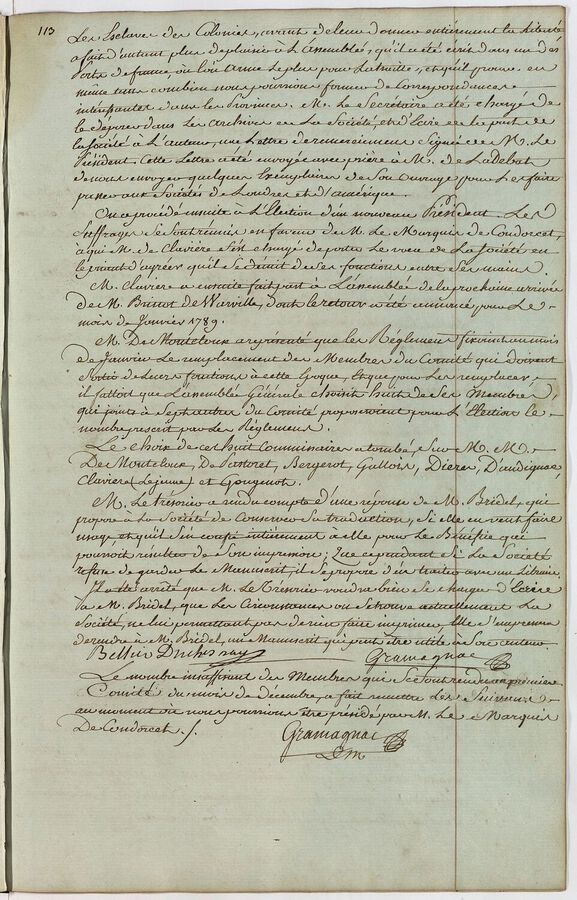 113
Les Esclaves des Colonies, avant de leur donner entièrement la liberté
a fait d'autant plus de plaisir à L'assemblée, qu'il a été écrit dans un des
Ports de france où l'on arme le plus pour la traite, et qu'il prouve en
même tems combien nous pourrions former de Correspondances
intéressantes dans les Provinces. M. Le Secretaire a été chargé de
le déposer dans les archives de La Société, et d'Ecrire de la part de
la Société à L'auteur, une Lettre de remerciemens Signée de M. Le
Président. Cette Lettre a été envoyée avec prière à M. de Ladebat
de nous envoyer quelques Exemplaires de Son Ouvrage pour Les faire
passer aux Sociétés de Londres et d'amérique.
On a procédé ensuite à L'Election d'un nouveau Président. Les
Suffrages se sont réunis en faveur de M. Le Marquis de Condorcet,
à qui M. de Claviere s'est chargé de porter le voeu de La Société en
le priant d'agréer qu'il se démit de ses fonctions entre ses mains.
M. Claviere a ensuite fait part à L'assemblée de la prochaine arrivée
de M. Brissot de Warville, dont le retour a été annoncé pour Le
mois de Janvier 1789.
M. De Montcloux a représenté que les Réglemens fixoient au mois
de Janvier Le remplacement des Membres du Comité qui doivent
Sortir de Leurs fonctions à cette Epoque, et que pour Les remplacer,
il falloit que L'assemblée Générale choisit huit de ses Membres,
qui joints à Sept autres du Comité proposeroient pour L'Election le
nombre prescrit par Les Réglemens.
Le choix de ces huit Commissaires a tombé, Sur M. M.
De Montcloux, De Pastoret, Bergerot, Gallois, Dieres, D'audignac,
Claviere (Le jeune) et Gougenot.
M. Le trésorier a rendu compte d'une réponse de M. Bridel, qui
propose à La Société de Conserver Sa traduction, Si elle en veut faire
usage, et qu'il S'en entièrement à elle pour Le Bénéfice qui
pourroit résulter de Son impression; Que cependant Si La Société
refuse de garder Le Manuscrit, il Se propose d'en traiter avec un Libraire.
Il a été arrêté que M. Le Trésorier voudra bien Se charger d'Ecrire
à M. Bridel, que Les Circonstances où Se trouve actuellement La
Société, ne lui permettant pas de rien faire imprimer, Elle S'empresse
de rendre à M. Bridel, un Manuscrit qui peut être utile à Son auteur.
Gramagnac
Le nombre insuffisant des Membres qui Se Sont rendus au premier
Comité du mois de décembre, a fait remettre Les Seances
au moment où nous pourrions être présidé par M. Le Marquis
De Condorcet.
Gramagnac